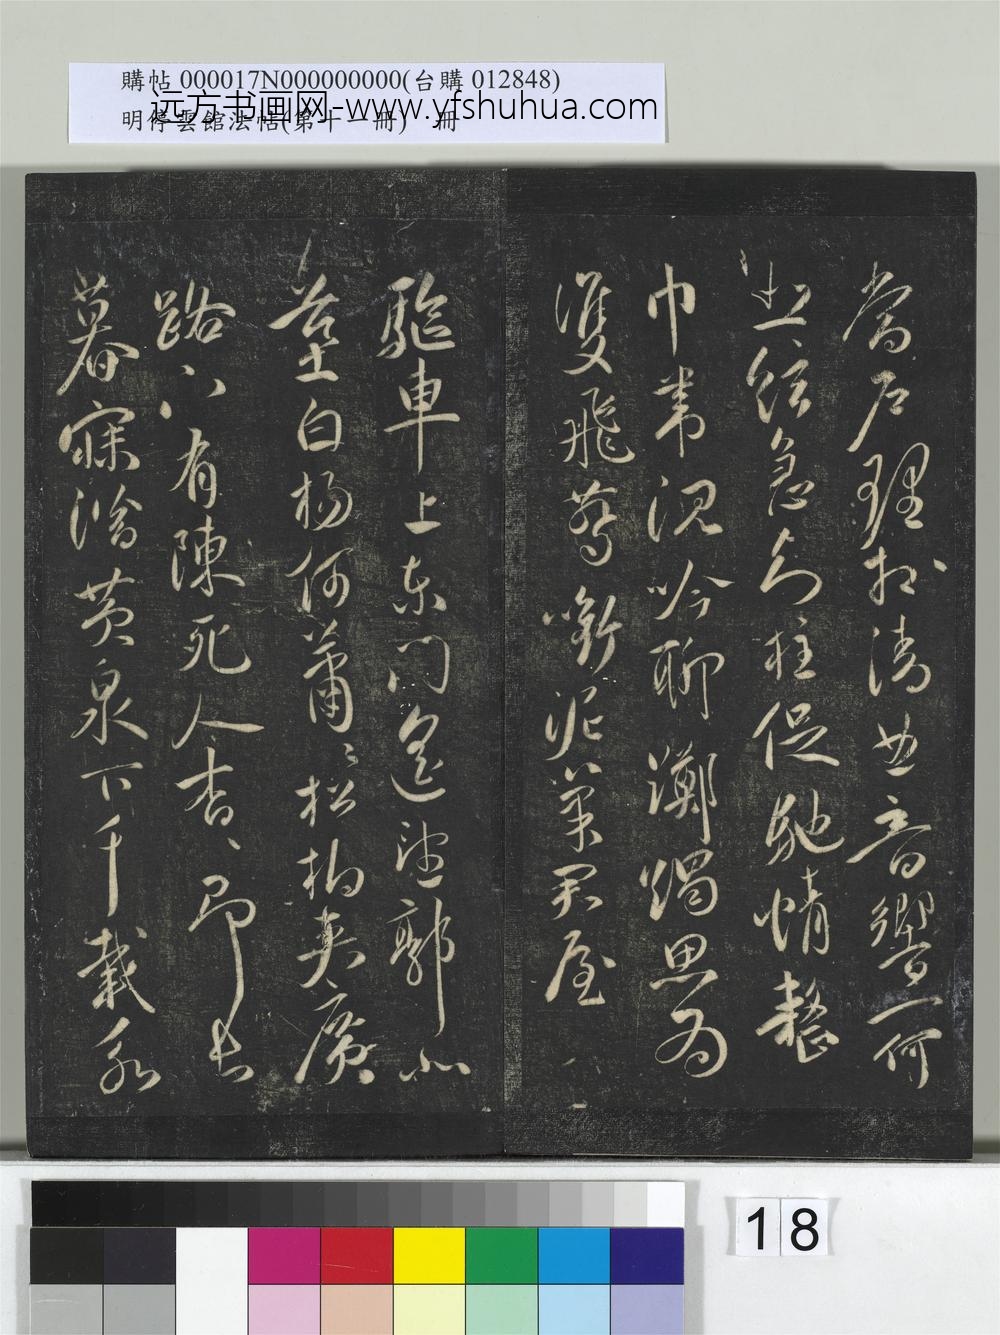 購帖 000017N000000000(台購 012848)
远方书画网-www.yfshuhua.com
明停雲館法帖(第十一冊) 冊
當户理於清曲音響一何
悲絃急知柱促馳情整
巾帶沉吟聊躑躅思為
雙飛燕啣泥巢君屋
驅車上東門遙望郭北
墓白楊何蕭〻松柏夾廣
路下有陳死人杳〻即長
暮寐潛黃泉下千載永
18